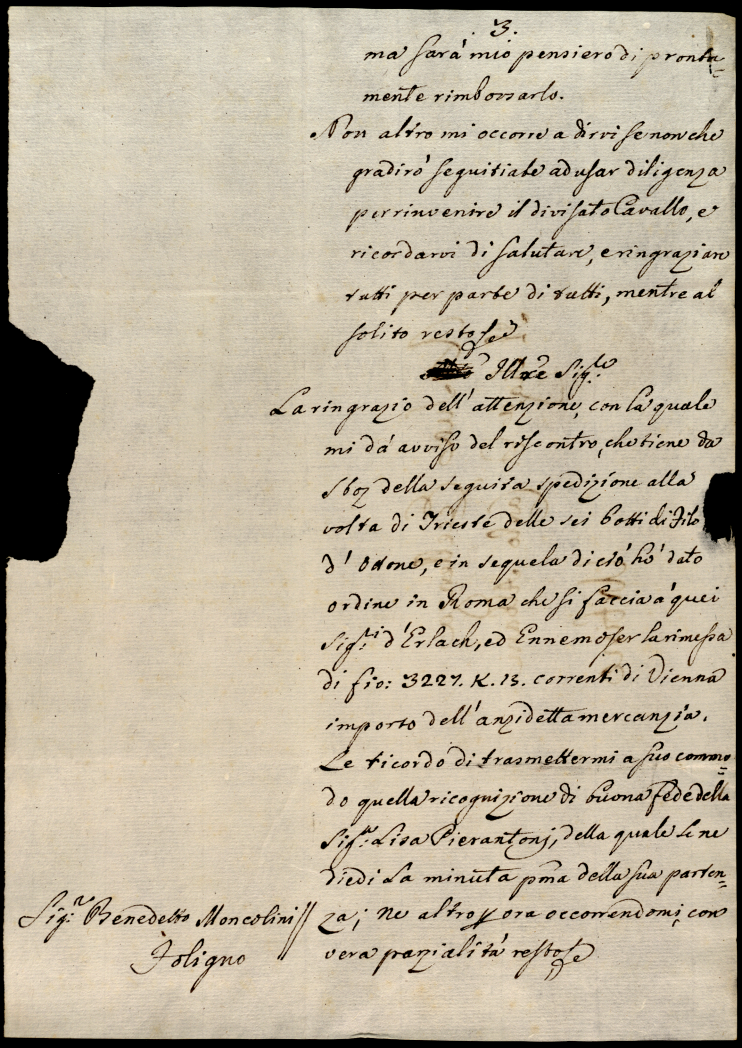 3.
ma sarà mio pensiero di pronta=
mente rimborsarlo.
Non altro mi occorre a dirvi se non che
gradirò seguitiate ad usar diligenza
per rinvenire il divisato Cavallo, e
ricordarvi di salutare, e ringraziare
tutti per parte di tutti, mentre al
solito resto
Illre Sigre
La ringrazio dell'attenzione, con la quale
mi dà avviso del riscontro, che tiene da
Sboz della seguita spedizione alla
volta di Trieste delle sei botti di Filo
d'Otone, e in sequela di ciò hò dato
ordine in Roma che si faccia a' quei
Sigri d'Erlach, ed Ennemoser la rimessa
di fio: 3227. K. 13. correnti di Vienna
importo dell'anzidetta mercanzia.
Le ricordo di trasmettermi a suo commo=
do quella ricognizione di buona fede della
Sigra Lisa Pierantonj, della quale Le ne
diedi La minuta pma della sua parten=
za; Ne altro p ora occorrendomi, con
vera parzialità resto
Sigr Benedetto Moncolini //
Foligno